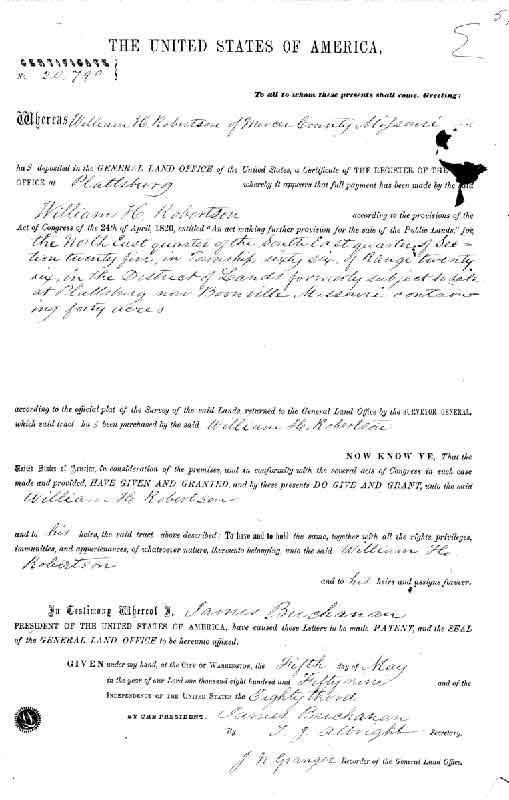 5
THE UNITED STATES OF AMERICA,
CERTIFICATE
No. 20,790
To all to whom these presents shall come, Greeting:
Whereas William H. Robertson of Mercer County Missouri
has deposited in the GENERAL LAND OFFICE of the United States, a Certificate of THE REGISTER OF THE
OFFICE at Plattsburg whereby it appears that full payment has been made by the said
William H. Robertson according to the provisions of the
Act of Congress of the 24th of April, 1820, entitled "An act making further provision for the sale of the Public Lands," for
the North East quarter of the South East quarter of Sec-
tion twenty five, in Township sixty six, of Range twenty
six, in the District of Lands formerly subject to sale
at Plattsburg now Boonville Missouri contain-
ing forty acres
according to the official plat of the Survey of the said Lands, returned to the General Land Office by the SURVEYOR GENERAL,
which said tract has been purchased by the said William H. Robertson
NOW KNOW YE, That the
United States of America, in consideration of the premises, and in conformity with the several acts of Congress in such case
made and provided, HAVE GIVEN AND GRANTED, and by these presents DO GIVE AND GRANT, unto the said
William H. Robertson
and to his heirs, the said tract above described: To have and to hold the same, together with all the rights, privileges,
immunities, and appurtenances, of whatsoever nature, thereunto belonging, unto the said William H.
Robertson
and to his heirs and assigns forever.
In Testimony Whereof I, James Buchanan
PRESIDENT OF THE UNITED STATES OF AMERICA, have caused these Letters to be made PATENT, and the SEAL
of the GENERAL LAND OFFICE to be hereunto affixed.
GIVEN under my hand, at the CITY OF WASHINGTON, the Fifth day of May
in the year of our Lord one thousand eight hundred and Fifty nine and of the
INDEPENDENCE OF THE UNITED STATES the Eighty third
BY THE PRESIDENT: James Buchanan
By T. J. Albright Secretary.
J. N. Granger Recorder of the General Land Office.